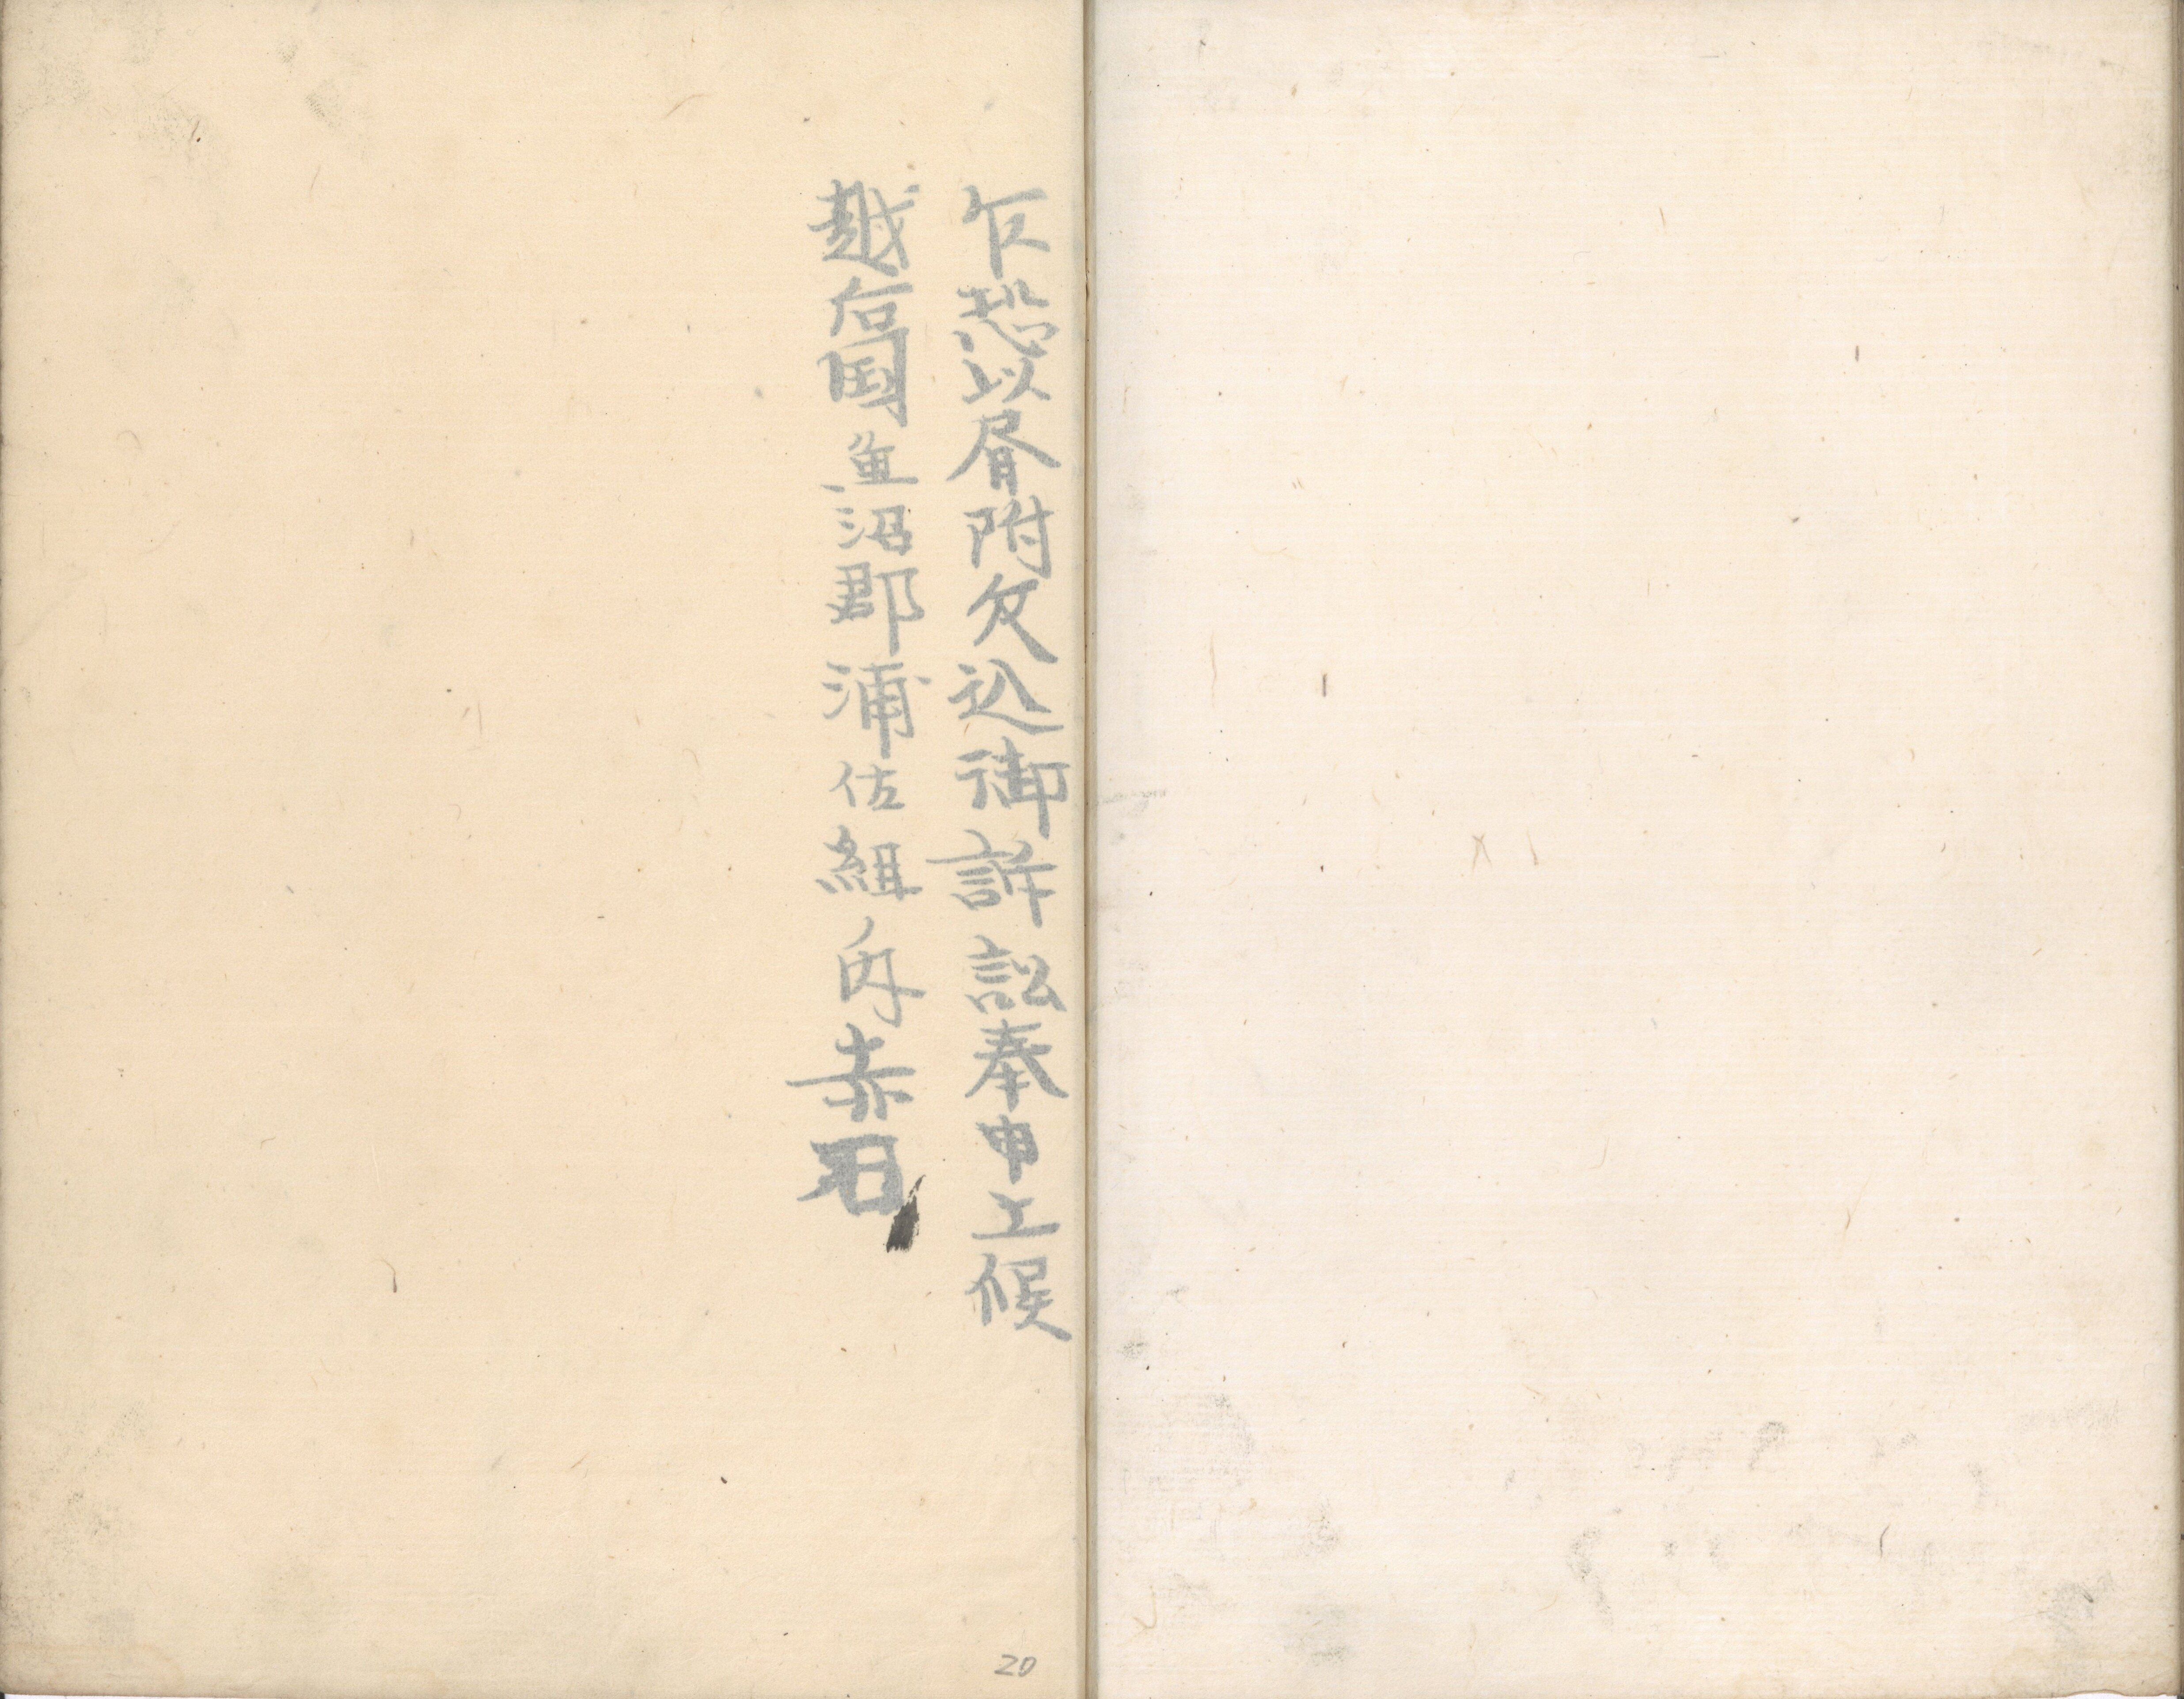 乍恐以脅附欠込御訴訟奉申上候
越后国魚沼郡浦佐組内赤石
20